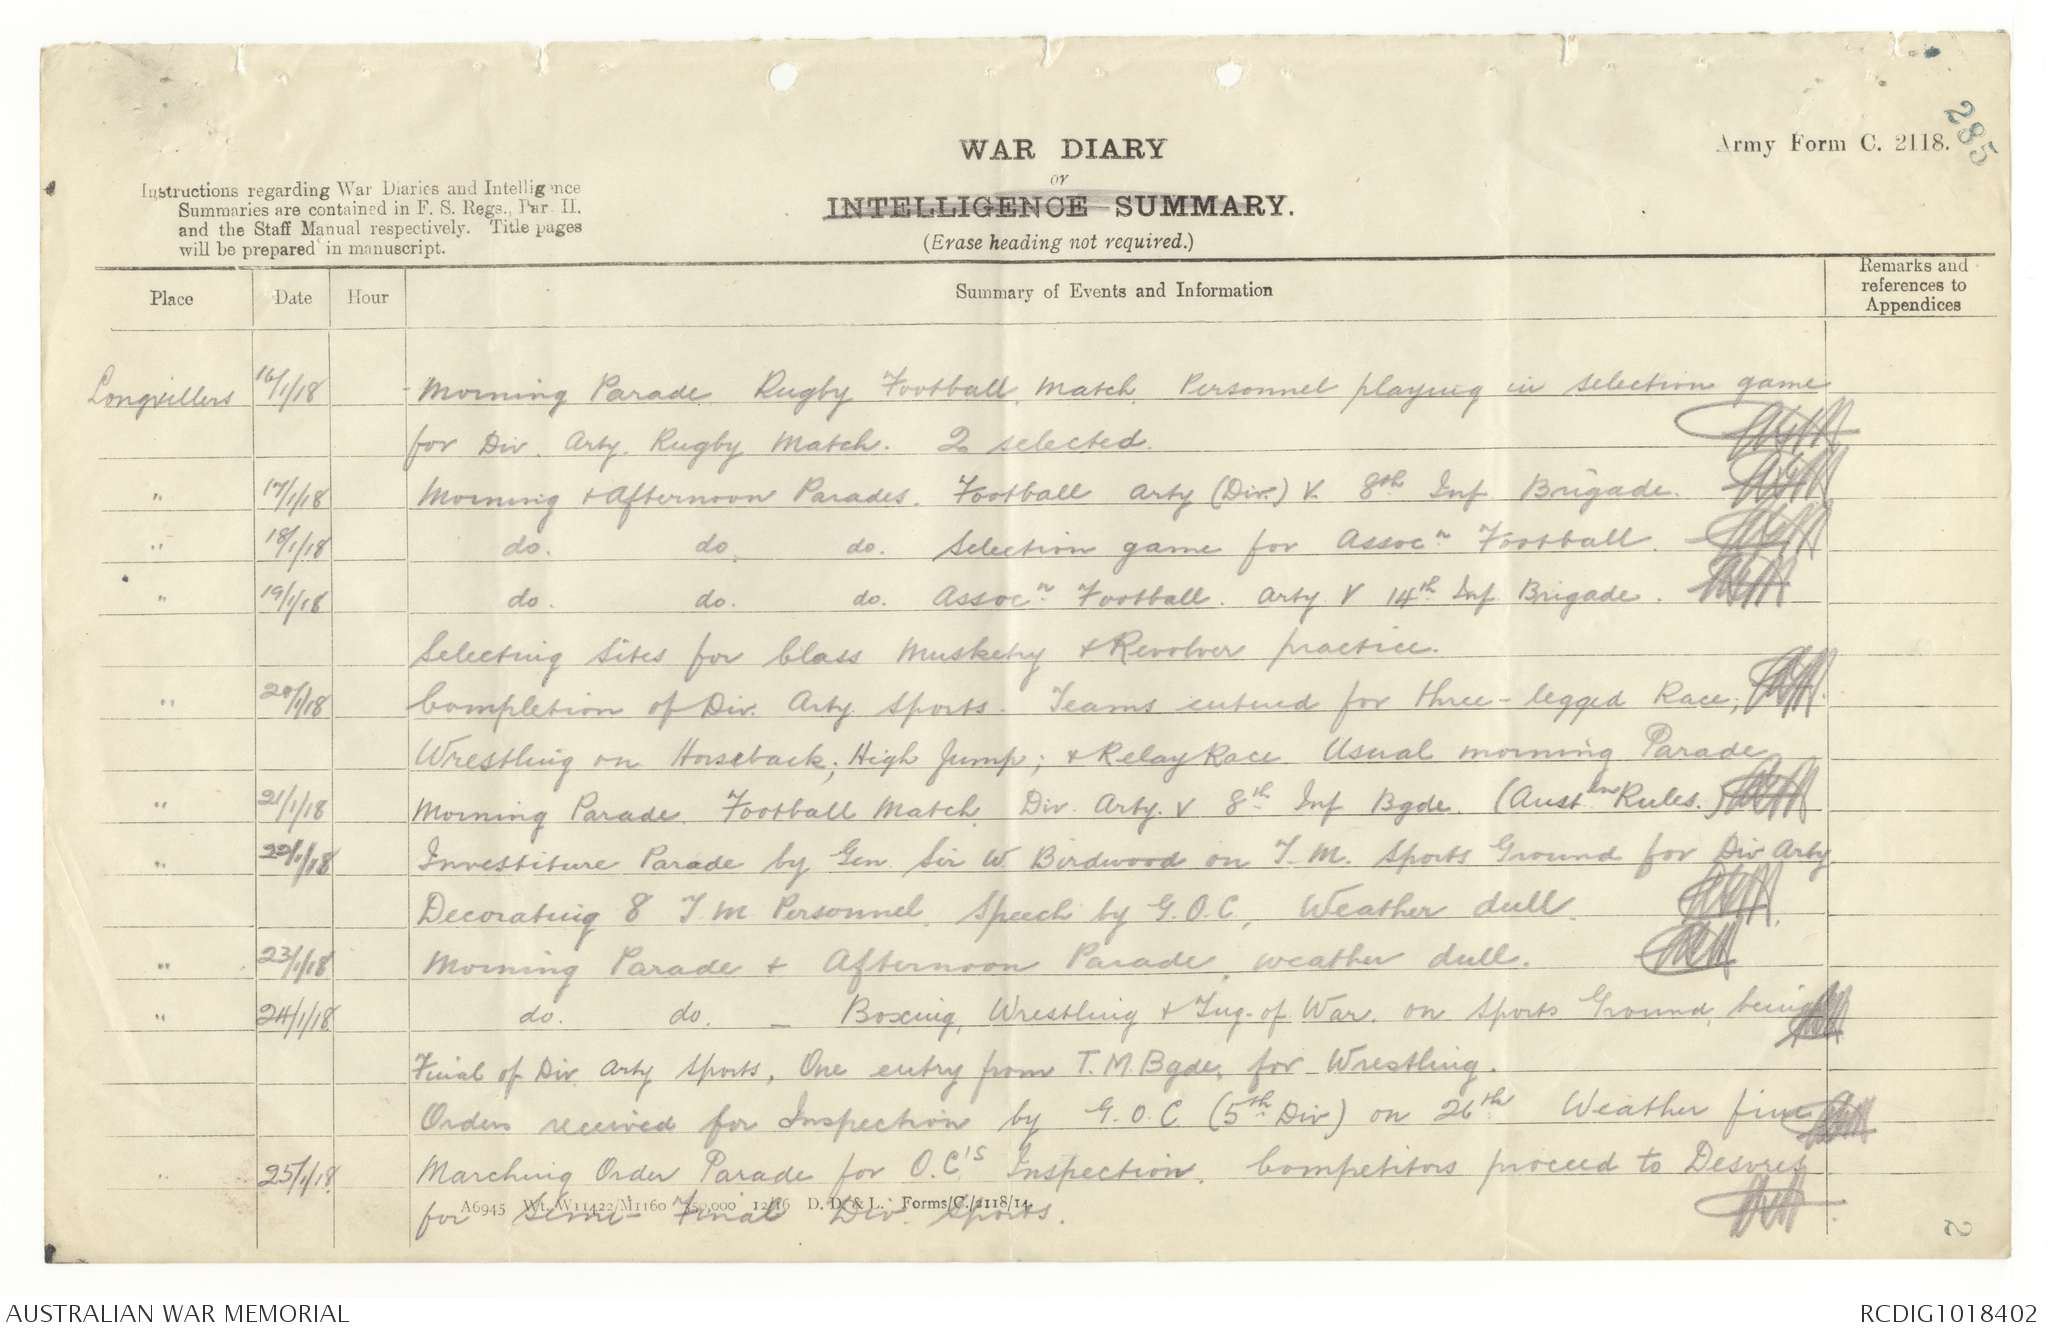 285
Army Form C. 2118.
WAR DIARY
or
INTELLIGENCE SUMMARY.
(Erase heading not required.)
Instructions regarding War Diaries and Intelligence
Summaries are contained in F. S. Regs., Par II.
and the Staff Manual respectively. Title pages
will be prepared in manuscript.
Place Date Hour Summary of Events and Information Remarks and references to Appendices
Longvillers 16/1/18 - Morning Parade. Rugby Football Match. Personnel playing in selection game
for Div. Arty. Rugby Match. 2 selected.
" 17/1/18 Morning & Afternoon Parades. Football Arty (Div.) v. 8th Inf Brigade.
" 18/1/18 do. do. do. Selection game for Assocn Football.
" 19/1/18 do. do. do. Assocn Football. Arty. V 14th Inf Brigade.
Selecting sites for Class Musketry & Revolver practice.
" 20/1/18 Completion of Div. Arty Sports. Teams entered for three-legged Race;
Wrestling on Horseback; High Jump; & Relay Race. Usual morning Parade
" 21/1/18 Morning Parade. Football Match. Div. Arty. v 8th Inf Bgde. (Austln Rules.)
" 22/1/18 Investiture Parade by Gen. Sir W Birdwood on T.M. Sports Ground for Div Arty.
Decorating 8 T.M. Personnel. Speech by G.O.C. Weather dull.
" 23/1/18 Morning Parade & Afternoon Parade, weather dull.
" 24/1/18 do. do. - Boxing, Wrestling & Tug-of-War. on Sports Ground, being
Final of Div Arty Sports, One entry from T.M. Bgde, for Wrestling.
Orders received for Inspection by G.O.C (5th Div) on 26th Weather fine
" 25/1/18 Marching Order Parade for O.C's Inspection. Competitors proceed to Desvres
for Semi-Final Div. Sports.
A6945 Wt. W11422/M1160 750,000 12/16 D. D. & L. Forms/C./2118/14.
2
AUSTRALIAN WAR MEMORIAL
RCDIG1018402